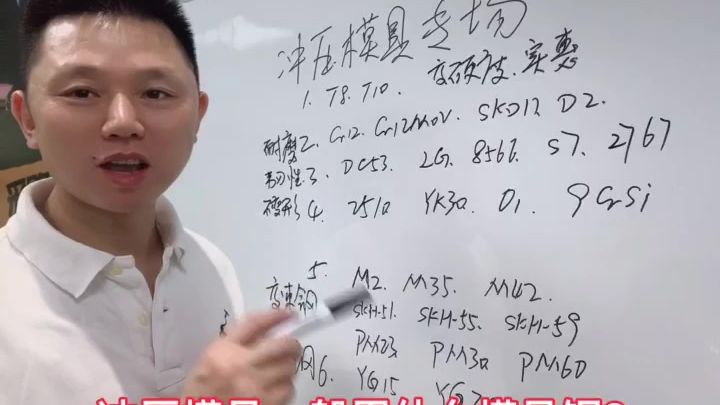 冲压模具专场
1. T8. T10. 变硬度. 实惠
耐磨2. Cr12. Cr12MoV. SKD11. D2.
韧性3. DC53. LG. 8566. S7. 2767
变形4. 2510 YK30. O1. 9CrSi
5. M2. M35. M42.
SKH-51. SKH-55. SKH-59
钢6. PM23 PM30 PM60
YG15
冲压模具一般用什么模具钢?